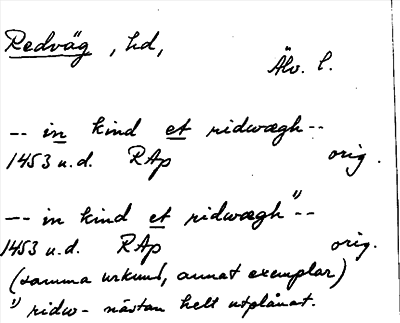 Redväg, hd,
Älv. l.
-- in kind et ridwægh --
1453 u.d. RAp orig.
-- in kind et ridwægh 1) --
1453 u.d. RAp orig.
(samma urkund, annat exemplar)
1) ridw- nästan helt utplånat.